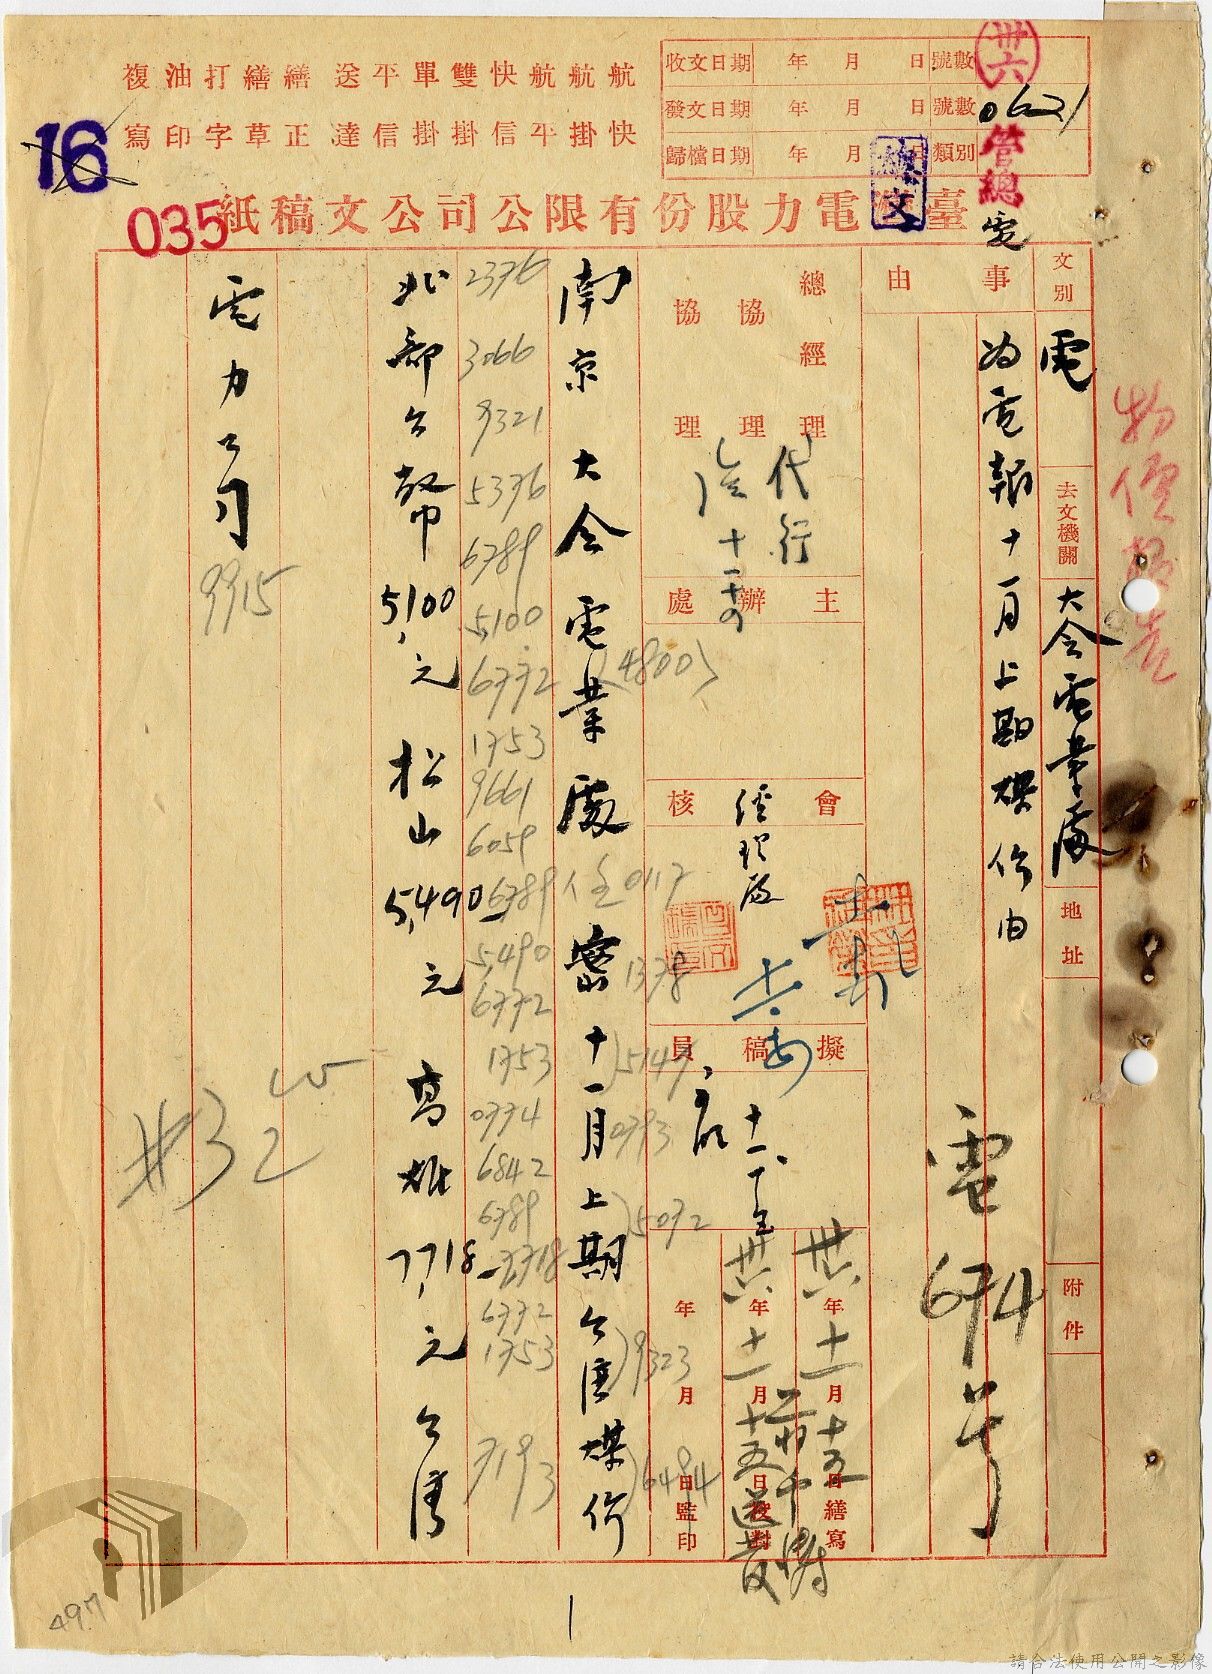 複 油 打 繕 繕 送 平 單 雙 快 航 航 航
寫 印 字 草 正 達 信 掛 掛 信 平 掛 快
收文日期 年 月 日 號數
發文日期 年 月 日 號數 0621
歸檔日期 年 月 日 類別
卅六
管總
電
16
035
臺灣電力股份有限公司文稿紙
文別 電
去文機關 大全電業處
地址
附件
事由
為電報十一月上期煤價由
電674号
物價報告
總經理
協理
協理
代行
十一
主辦處
會核
經理處
擬稿員
十一
卅六年十一月十五日繕寫
卅六年十一月十五日校對
年 月 日監印
南京 大全 電業處 密 十一月上期台售煤價
(4800)
0117
1378
5147
0793
5072
9323
6494
2376
3066
9321
5376
6789
5,100
6772
1753
9661
6059
6789
5,490
6772
1753
0774
6842
6789
7,718
6772
1753
7193
北部台幣5,100元 松山5,490元 高雄7,718元 台售
電力公司
9915
#32
497
1
請合法使用公開之影像